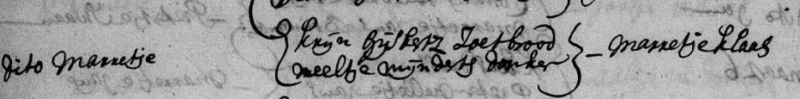 dito Marretje
krijn Gijsbertz Zoetbrood
neeltje mijnderts donker
Marretje klaas